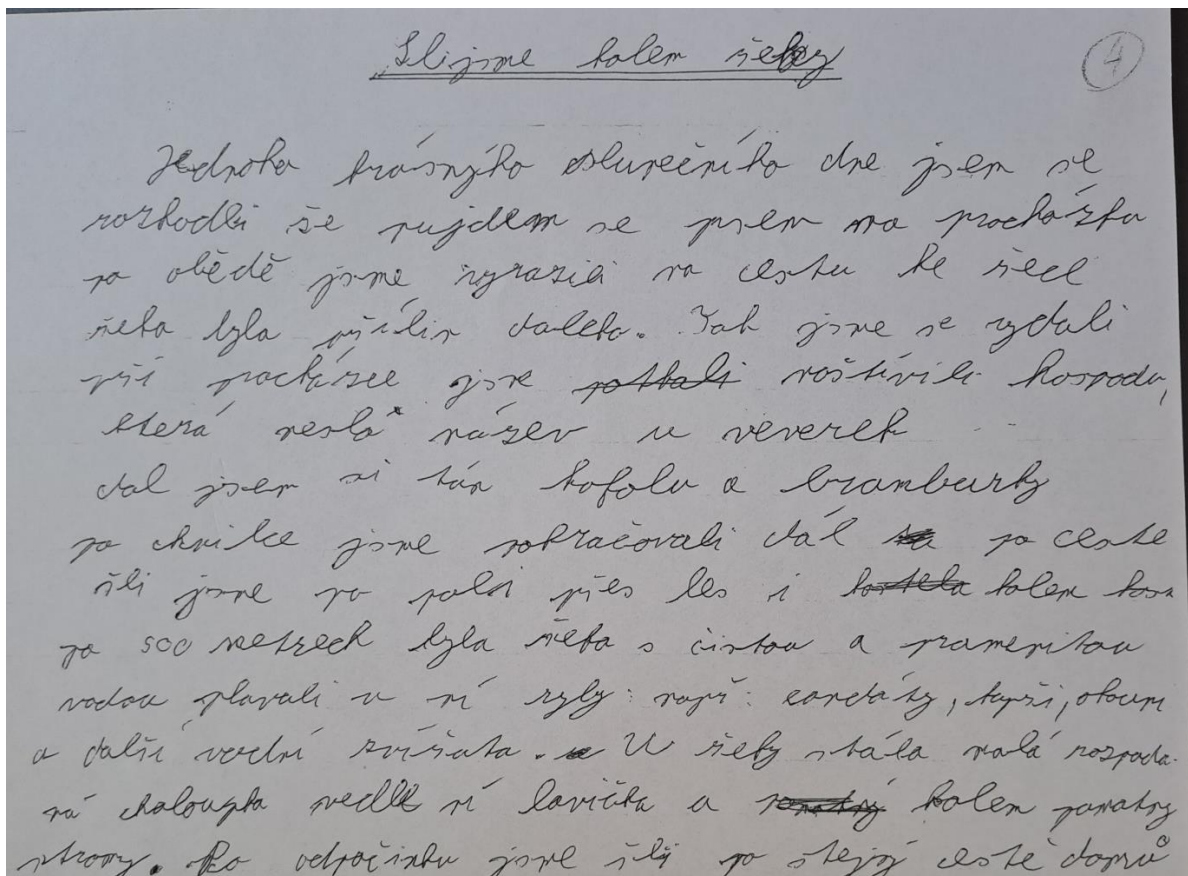 „Šli jsme kolem řeky
4
Jednoho krásnýho slunečního dne jsem se
rozhodli še pujdem se psem na procházku
po obědě jsme vyrazili na cestu ke řece
řeka byla příliš daleko. Tak jsme se vydali
při procházce jsme potkali navštívili hospodu,
která nesla název u veverek
dal jsem si tán kofolu a bramburky
po chvilce jsme pokračovali dál po ceste
šli jsme po poli přes les i kolem
po 500 metrech byla řeka s čistou a pramenitou
vodou plavali v ní ryby: např: candáty, kapři, okouni
a další vodní zvířata. U řeky stála malá rozpada-
ná chaloupka vedle ní lavička a kolem památny
stromy. Po odpočinku jsme šli po stejý cestě domů